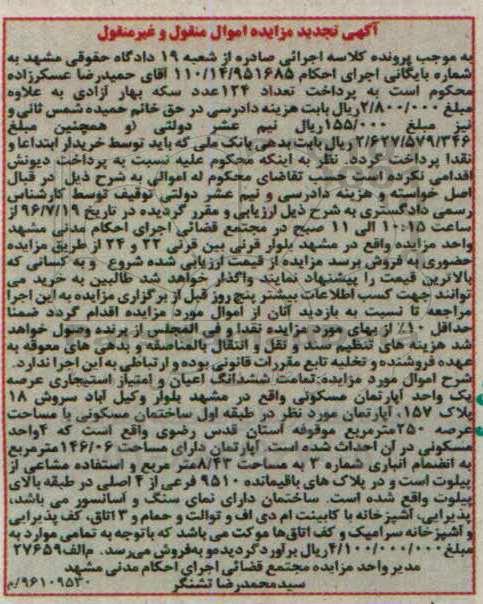 آگهی تجدید مزایده اموال منقول و غیرمنقول
به موجب پرونده کلاسه اجرائی صادره از شعبه ۱۹ دادگاه حقوقی مشهد به
شماره بایگانی اجرای احکام ۱۱۰/۱۴/۹۵۱۶۸۵ آقای حمیدرضا عسکرزاده
محکوم است به پرداخت تعداد ۱۲۴عدد سکه بهار آزادی به علاوه
مبلغ ۲/۸۰۰/۰۰۰ریال بابت هزینه دادرسی در حق خانم حمیده شمس ثانی و
نیز مبلغ ۱۵۵/۰۰۰ریال نیم عشر دولتی (و همچنین مبلغ
۲/۶۲۷/۵۷۹/۳۴۶ ریال بابت بدهی بانک ملی که باید توسط خریدار ابتداعا و
نقدا پرداخت گردد. نظر به اینکه محکوم علیه نسبت به پرداخت دیونش
اقدامی نکرده است حسب تقاضای محکوم له اموالی به شرح ذیل در قبال
اصل خواسته و هزینه دادرسی و نیم عشر دولتی توقیف توسط کارشناس
رسمی دادگستری به شرح ذیل ارزیابی و مقرر گردیده در تاریخ ۹۶/۷/۱۹ از
ساعت ۱۰:۱۵ الی ۱۱ صبح در مجتمع قضائی اجرای احکام مدنی مشهد
واحد مزایده واقع در مشهد بلوار قرنی بین قرنی ۲۲ و ۲۴ از طریق مزایده
حضوری به فروش برسد مزایده از قیمت ارزیابی شده شروع و به کسانی که
بالاترین قیمت را پیشنهاد نمایند واگذار خواهد شد طالبین به خرید می
توانند جهت کسب اطلاعات بیشتر پنج روز قبل از برگزاری مزایده به این اجرا
مراجعه تا نسبت به بازدید آنان از اموال مورد مزایده اقدام گردد ضمنا
حداقل ۱۰٪ از بهای مورد مزایده نقدا و فی المجلس از برنده وصول خواهد
شد هزینه های تنظیم سند و نقل و انتقال بالمناصفه و بدهی های معوقه به
عهده فروشنده و تخلیه تابع مقررات قانونی بوده و ارتباطی به این اجرا ندارد.
شرح اموال مورد مزایده:تمامت ششدانگ اعیان و امتیاز استیجاری عرصه
یک واحد آپارتمان مسکونی واقع در مشهد بلوار وکیل آباد سروش ۱۸
پلاک ۱۵۷، آپارتمان مورد نظر در طبقه اول ساختمان مسکونی با مساحت
عرصه ۲۵۰مترمربع موقوفه آستان قدس رضوی واقع است که ۴واحد
مسکونی در آن احداث شده است. آپارتمان دارای مساحت ۱۴۶/۰۶مترمربع
به انضمام انباری شماره ۳ به مساحت ۸/۴۳متر مربع و استفاده مشاعی از
پیلوت است و در پلاک های باقیمانده ۹۵۱۰ فرعی از ۴ اصلی در طبقه بالای
پیلوت واقع شده است. ساختمان دارای نمای سنگ و آسانسور می باشد،
پذیرایی، آشپزخانه با کابینت ام دی اف و توالت و حمام و ۳ اتاق، کف پذیرایی
و آشپزخانه سرامیک و کف اتاق‌ها موکت می باشد که باتوجه به تمامی موارد به
مبلغ ۴/۱۰۰/۰۰۰/۰۰۰ریال برآورد گردید مو به فروش می رسد. م‌الف۲۷۶۵۹
مدیر واحد مزایده مجتمع قضائی اجرای احکام مدنی مشهد
سیدمحمدرضا تشنگر
۹۶۱۰۹۵۳۰/م